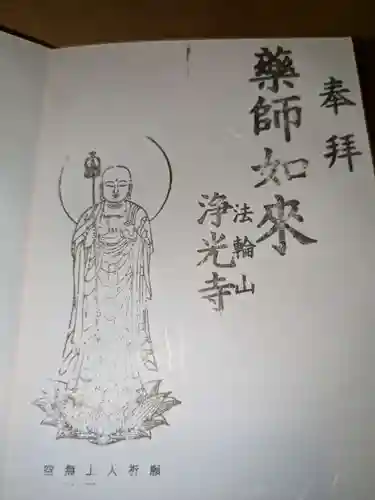 奉拝
藥師如來
法輪山
浄光寺
空無上人祈願